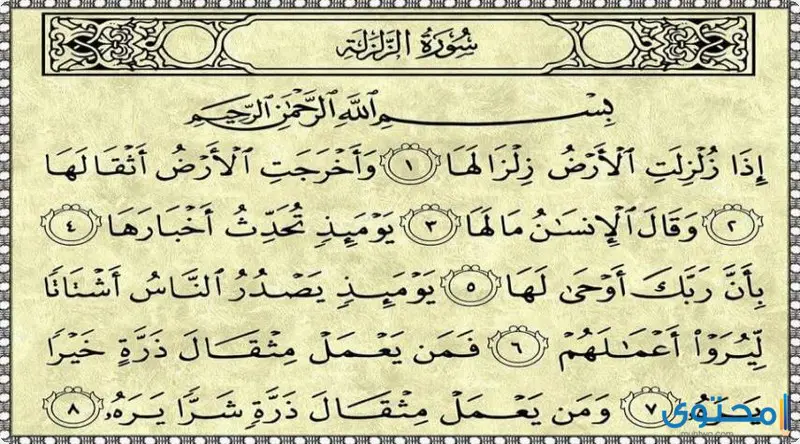 سُورَةُ الزَّلْزَلَةِ
بِسْمِ اللَّهِ الرَّحْمَٰنِ الرَّحِيمِ
إِذَا زُلْزِلَتِ الْأَرْضُ زِلْزَالَهَا ١ وَأَخْرَجَتِ الْأَرْضُ أَثْقَالَهَا
٢ وَقَالَ الْإِنسَٰنُ مَا لَهَا ٣ يَوْمَئِذٍ تُحَدِّثُ أَخْبَارَهَا ٤
بِأَنَّ رَبَّكَ أَوْحَىٰ لَهَا ٥ يَوْمَئِذٍ يَصْدُرُ النَّاسُ أَشْتَاتًا
لِّيُرَوْا أَعْمَٰلَهُمْ ٦ فَمَن يَعْمَلْ مِثْقَالَ ذَرَّةٍ خَيْرًا
يَرَهُۥ ٧ وَمَن يَعْمَلْ مِثْقَالَ ذَرَّةٍ شَرًّا يَرَهُۥ ٨
محتوى